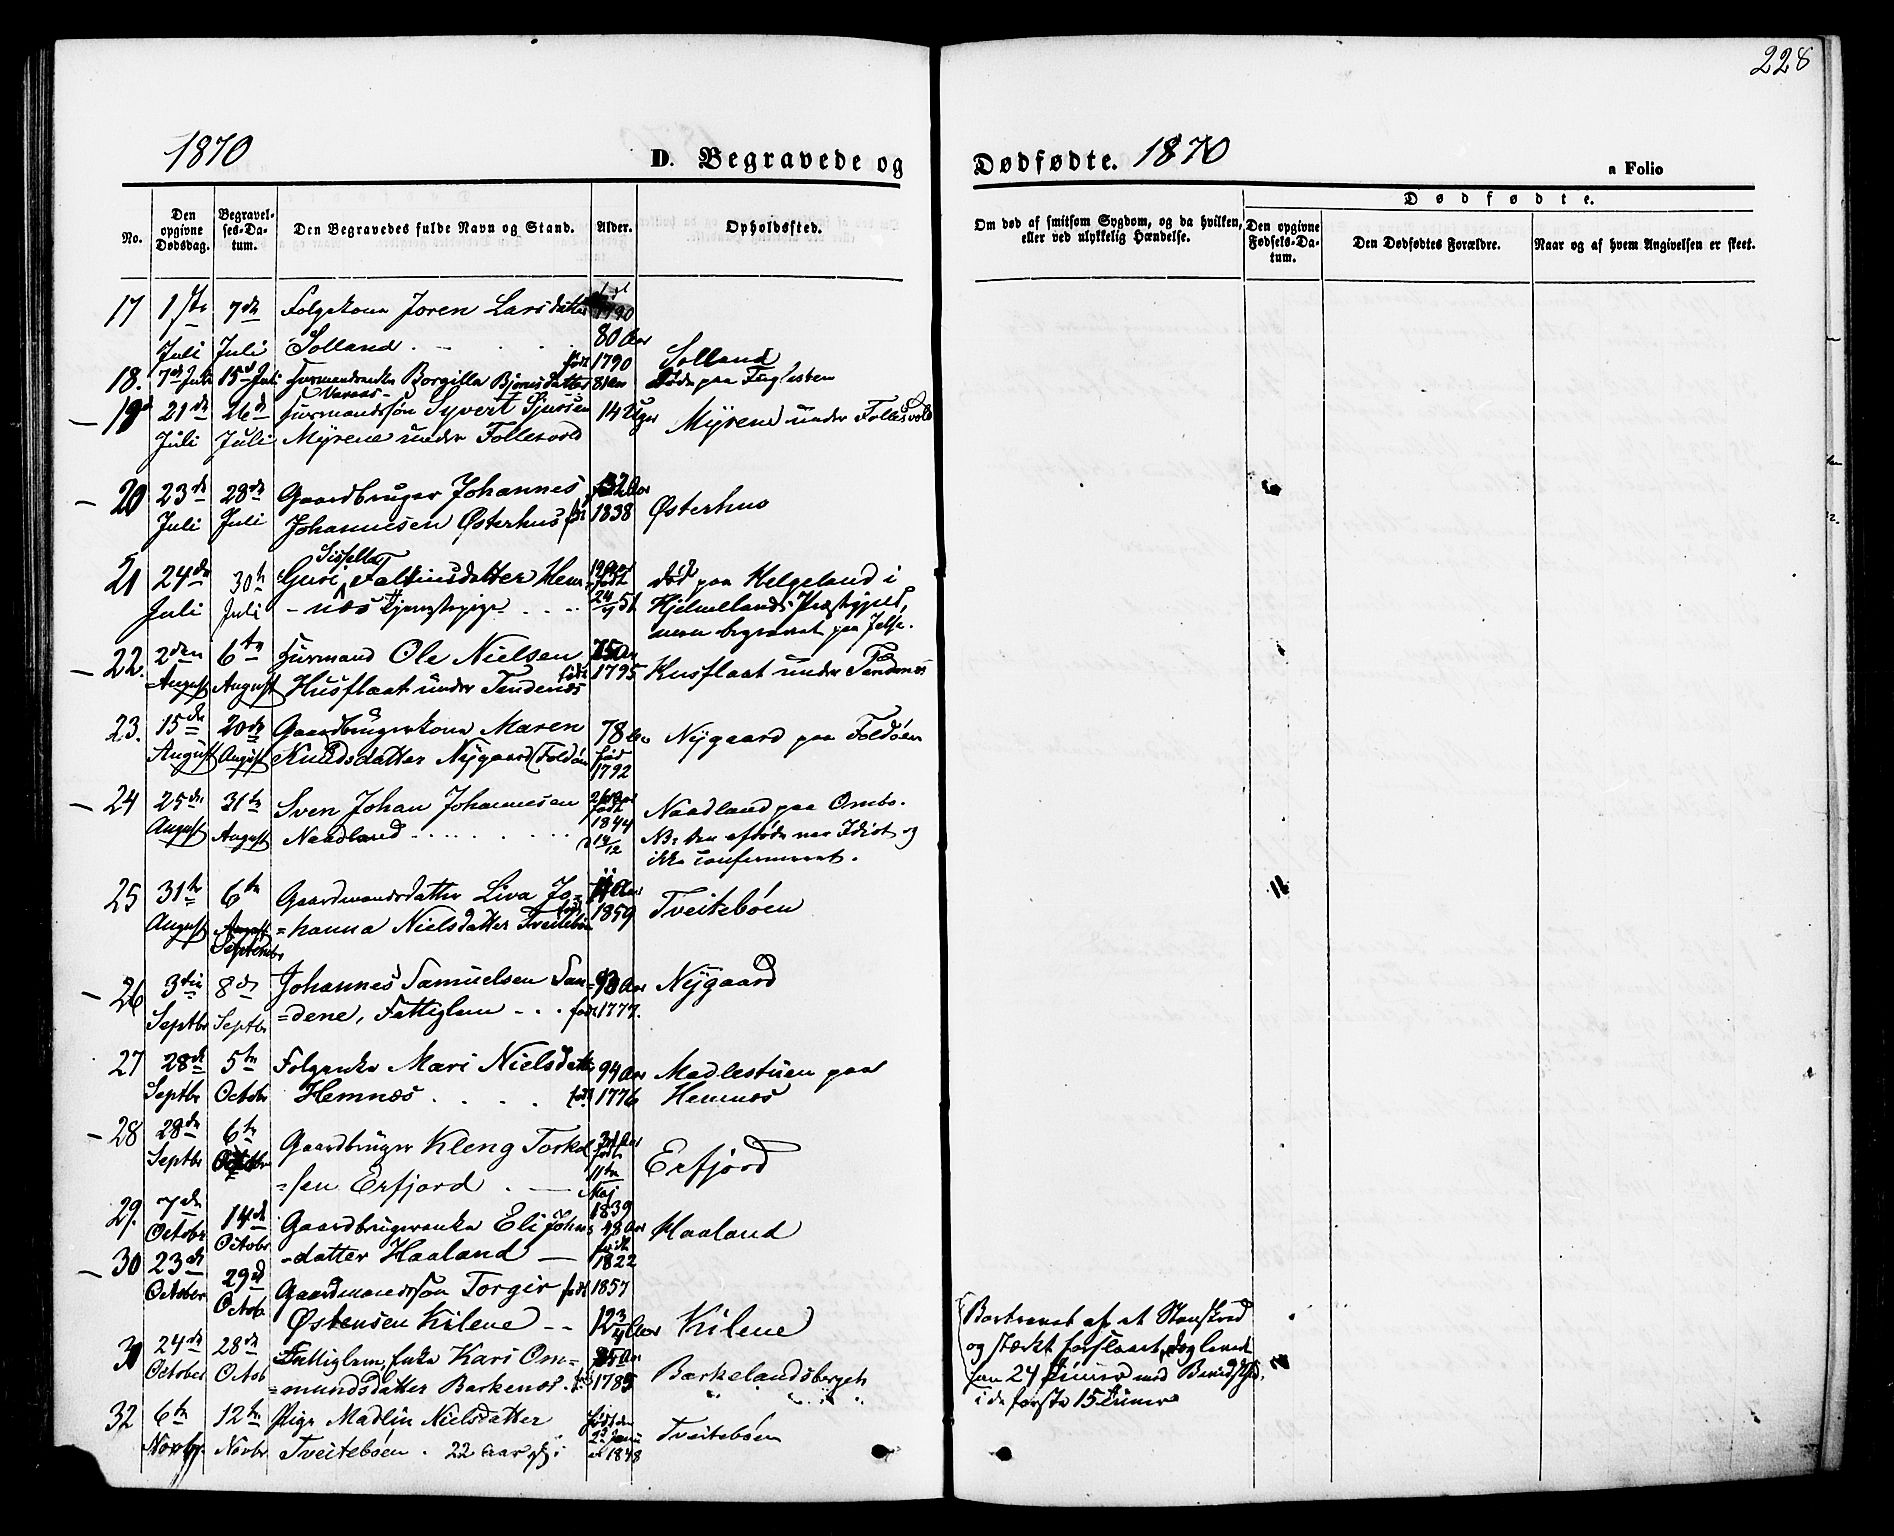 228
1870
D. Begravede og
Dødfødte. 1870
a Folio
No.
Den opgivne Dødsdag.
Begravelses-Datum.
Den Begravedes fulde Navn og Stand.
Alder.
Opholdssted.
Om død af smitsom Sygdom, og da hvilken, eller ved ulykkelig Hændelse.
Dødfødte.
Den opgivne Fødsels-Datum.
Den Dødfødtes Forældre.
Naar og af hvem Angivelsen er skeet.
17 1ste 7de Folgekone Joren Larsdatter 1790
Juli Juli Solland 80 Aar Solland
18. 7de Juli 15de Juli Huusmandsenke Borgilla Bjørnsdatter født 1790 Døde paa Fuglesteen
19 21de 26de Huusmandssøn Syvert Sjursen 14 Uger Myrene under Follesvold
Juli Juli Myrene under Follesvold
20 23de 28de Gaardbruger Johannes 32 Aar
Juli Juli Johannesen Østerhus født 1838 Østerhus
Sissella
21 24de 30te Guri Falkinsdatter Hem- 19 Aar født død paa Helgeland i
Juli Juli -næs Tjenestepige 24/4 51 Hjelmelands Præstegjeld,
men begravet paa Jelse.
22. 2den 6te Huusmand Ole Nielsen 75 Aar
August August Husflaat under Tendenæs født 1795 Husflaat under Tendenæs
23. 15de 20de Gaardbrugerkone Maren 78 Aar Nygaard paa Foldøen
August August Knudsdatter Nygaard (Foldøen født 1792
24 25de 31te Sven Johan Johannesen 26 Aar født Naadland paa Ombo.
August August Naadland 1844 NB: Den afdøde var Idiot og
14/12 ikke confirmeret.
25 31te 6te Gaardmandsdatter Liva Jo- 11 Aar
August August September =hanna Nielsdatter Tveitebøen født 1859 Tveitebøen
26 3die 8de Johannes Samuelsen San- 93 Aar Nygaard
Septbr Septbr =dene, Fattiglem født 1777.
27 28de 5te Folgeenke Mari Nielsdatt 94 Aar Madlestuen paa
Septbr Octobr Hemnæs født 1776 Hemnæs
28 28de 6te Gaardbruger Kleng Torkel 31 Aar født
Septbr Octbr =sen Erfjord 11te Maj 1839 Erfjord
29. 7de 14de Gaardbrugerenke Eli Johns 48 Aar Haaland
October Octobr -datter Haaland født 1822
30 23de 29de Gaardmandssøn Torgir født 1857
October Octob Østensen Kilene 12 3/4 Aar Kilene
Bortrevet af et Steenskred
og stærkt forslaaet, dog levede
han 24 Timer med Bevidsthed
i de første 15 Timer
31 24de 28de Fattiglem, Enke Kari Om- 85 Aar
October Octob =mundsdatter Barkenæs født 1785 Barkelandsberget
32 6te 12te Pige Madlin Nielsdatter født den
Novbr. Novbr Tveitebøen. 22 Aar 1848 Tveitebøen